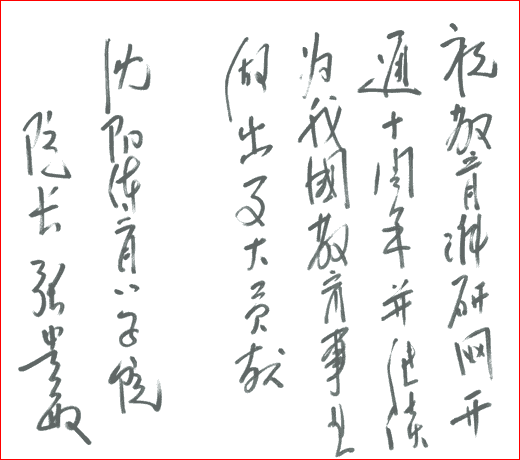 祝教育科研网开
通十周年并继续
为我國教育事业
做出更大贡献
沈阳体育学院
院长 张贵敏